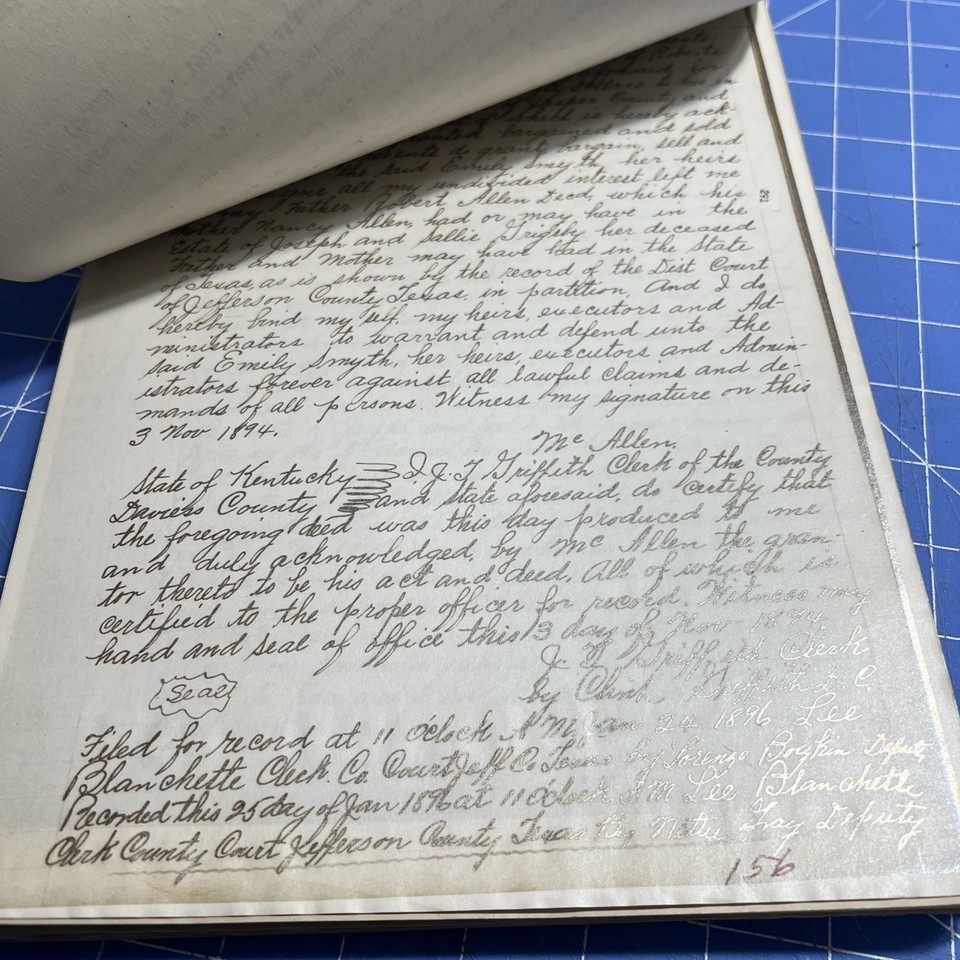 Roberts
for
County and
of which is hereby ack-
bargained and sold
presents do grant, bargain, sell and
the said Emily Smyth, her heirs
all my undivided interest left me
my Father Robert Allen Decd, which his
Mother Nancy Allen, had or may have in the
Estate of Joseph and Sallie Grigsby her deceased
Father and Mother may have had in the State
of Texas, as is shown by the record of the Dist Court
of Jefferson County, Texas, in partition, And I do
hereby bind my self, my heirs, executors and Ad-
ministrators to warrant and defend unto the
said Emily Smyth, her heirs, executors and Admin-
istrators forever against all lawful claims and de-
mands of all persons. Witness my signature on this
3 Nov 1894.
Mc Allen.
State of Kentucky I, J. T Griffith Clerk of the County
Daviess County and State aforesaid, do certify that
the foregoing deed was this day produced to me
and duly acknowledged, by Mc Allen the gran-
tor thereto to be his act and deed. All of which is
certified to the proper officer for record. Witness my
hand and seal of office this 3 day of Nov 1894
J. T Griffith Clerk
Seal
by Clint Griffith D. C.
Filed for record at 11 O'clock A M, Jan 24 1896 Lee
Blanchette Clerk. Co. Court Jeff Co Texas by Lorenzo Boykin Deputy
Recorded this 25 day of Jan 1896 at 11 O'clock A M Lee Blanchette
Clerk County Court Jefferson County Texas By Nettie Gray Deputy
156
291